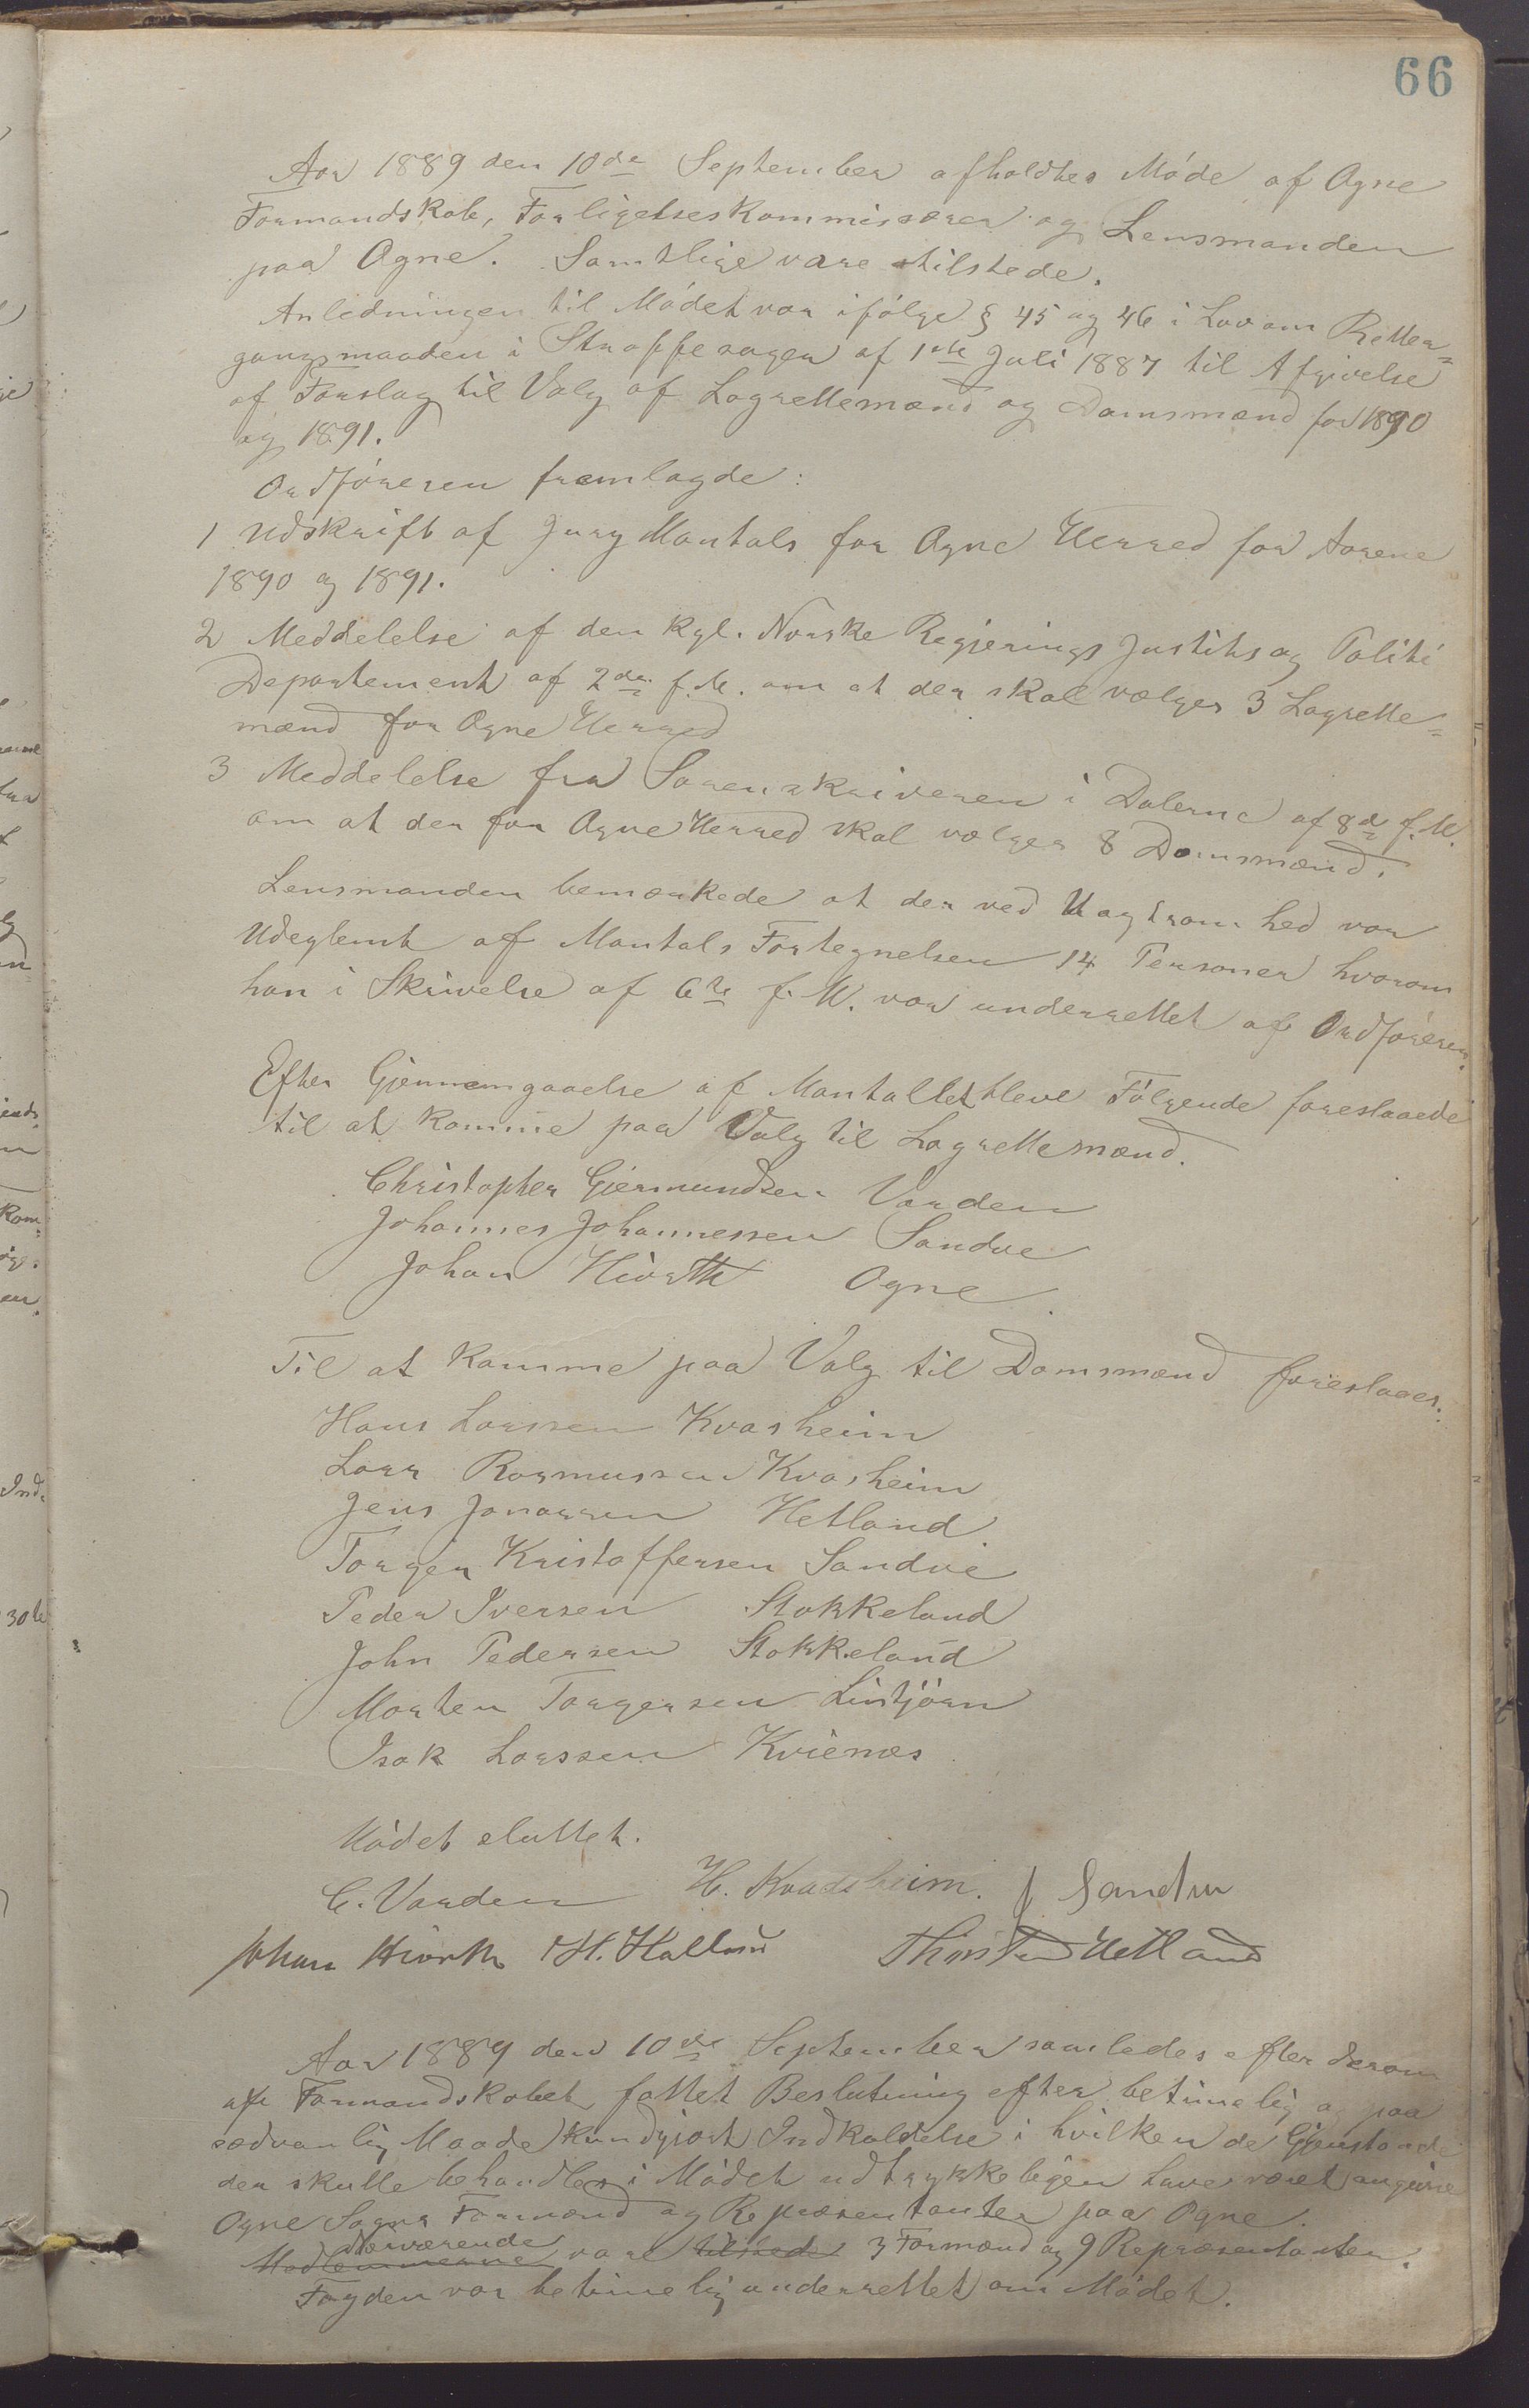 66
Aar 1889 den 10de September afholdtes Møde af Ogne
Formandskab, Forligelseskommissærer og Lensmanden
paa Ogne. Samtlige vare tilstede.
Anledningen til Mødet var ifølge § 45 og 46 i Lov om Retter-
gangsmaaden i Straffesager af 1ste Juli 1887 til Afgivelse
af Forslag til Valg af Lagrettemænd og Domsmænd for 1890
og 1891.
Ordføreren fremlagde:
1 Udskrift af Jury Mantals for Ogne Herred for Aarene
1890 og 1891.
2 Meddelelse af den Kgl. Norske Regjerings Justits og Politi
Departement af 2de f. M. om at der skal vælges 3 Lagrette-
mænd for Ogne Herred
3 Meddelelse fra Sorenskriveren i Dalerne af 8de f. M.
om at der for Ogne Herred skal vælges 8 Domsmænd.
Lensmanden bemærkede at der ved Uagtsomhed var
Udeglemt af Mantals Fortegnelsen 14 Personer hvorom
han i Skrivelse af 6te f. M. var underrettet af Ordføreren.
Efter Gjennemgaaelse af Mantallet bleve Følgende foreslaaede
til at komme paa Valg til Lagrettemænd.
Christopher Gjermundsen Varden
Johannes Johannessen Sandve
Johan Hiorth Ogne.
Til at komme paa Valg til Domsmænd foreslaaes:
Hans Larssen Kvasheim
Lars Rasmussen Kvasheim
Jens Jonassen Hetland
Torger Kristoffersen Sandve
Peder Iversen Stokkeland
John Pedersen Stokkeland
Morten Torgersen Lintjørn
Isak Larssen Kvienæs
Mødet sluttet.
C. Varden H. Kvadsheim. J Sandve
Johan Hiorth H. Hetland
Aar 1889 den 10de September samledes efter derom
af Formandskabet fattet Beslutning efter betimelig og paa
sædvanlig Maade Kundgjort Indkaldelse i hvilken de Gjenstande
der skulle behandles i Mødet udtrykkeligen have været angivne
Ogne Sogns Formænd og Repræsentanter paa Ogne.
Nærværende
Medlemmerne vare tilsted 3 Formænd og 9 Repræsentanter.
Fogden var betimelig underrettet om Mødet.